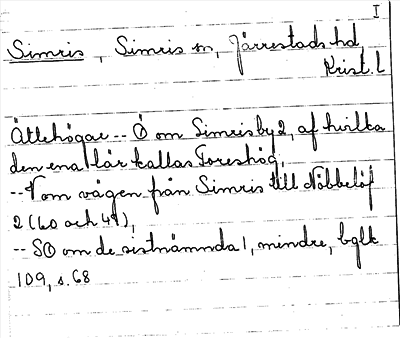 I
Simris, Simris sn, Järrestads hd
Krist. L
Ättehögar -- Ö om Simrisby 2, af hvilka
den ena lär kallas Toreshög,
-- V om vägen från Simris till Nöbbelöf
2 (60 och 41),
-- SO om de sistnämnda 1, mindre, bglk
109, s. 68